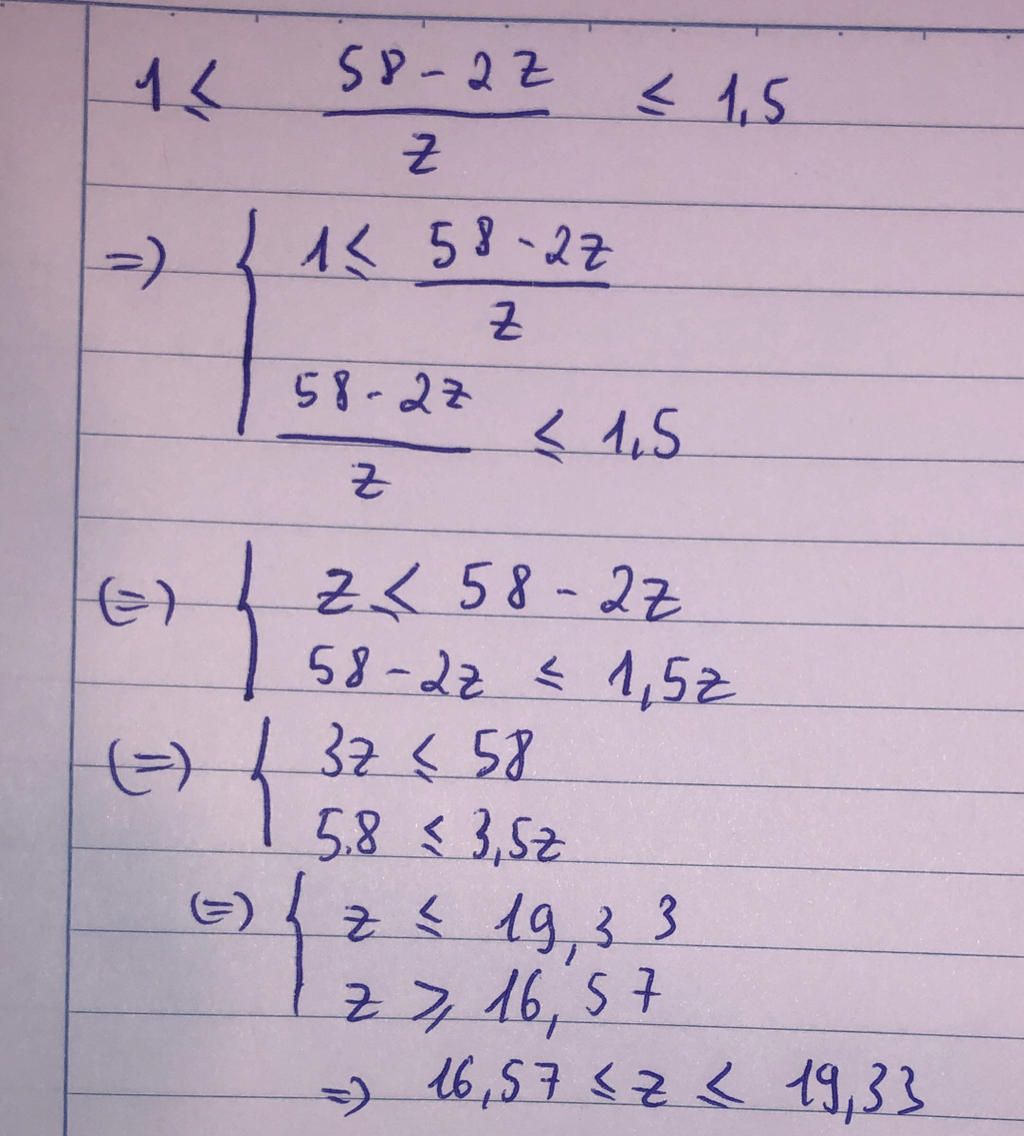 1 ≤ (58 - 2Z)/Z ≤ 1,5
=) { 1 ≤ (58 - 2Z)/Z
(58 - 2Z)/Z ≤ 1,5
(=) { Z ≤ 58 - 2Z
58 - 2Z ≤ 1,5Z
(=) { 3Z ≤ 58
58 ≤ 3,5Z
(=) { Z ≤ 19,33
Z ≥ 16,57
=) 16,57 ≤ Z ≤ 19,33